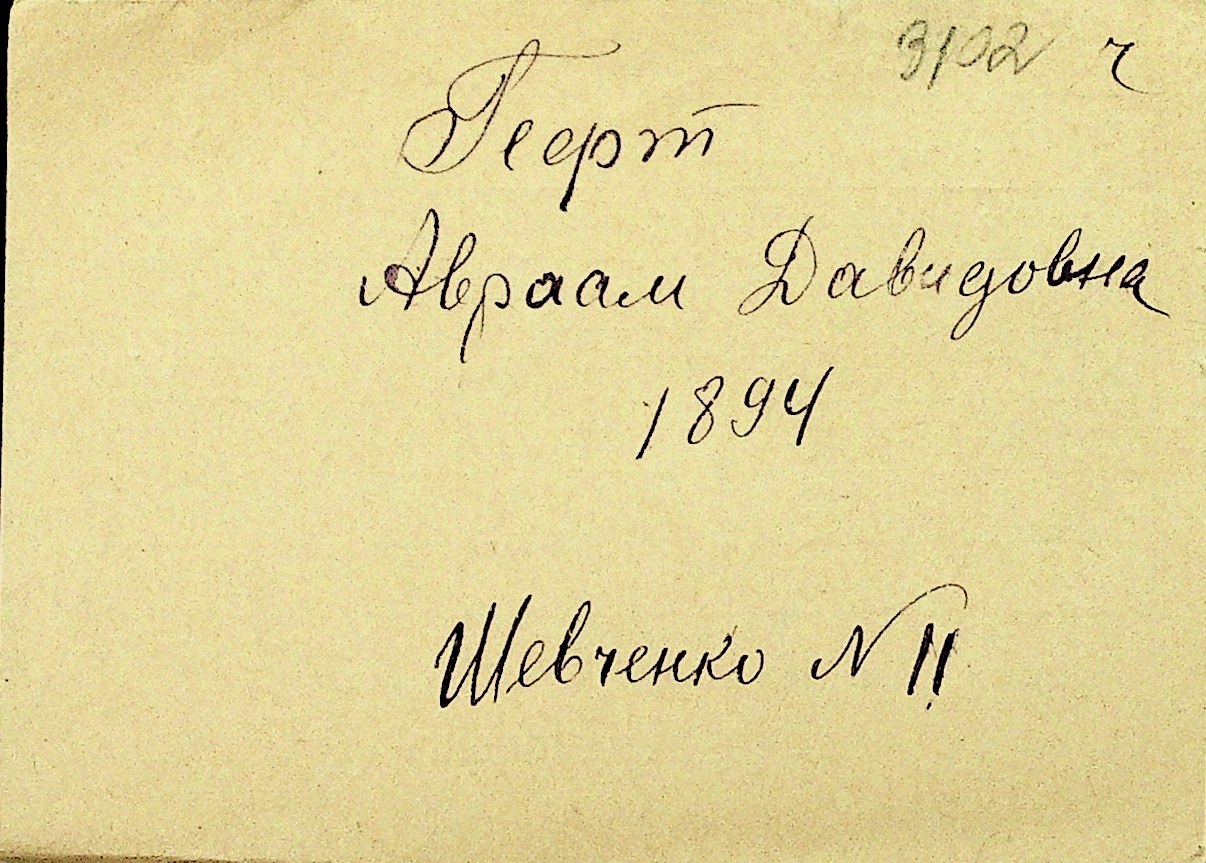 3102 ч
Геерт
Авраам Давидовна
1894
Шевченко N 11